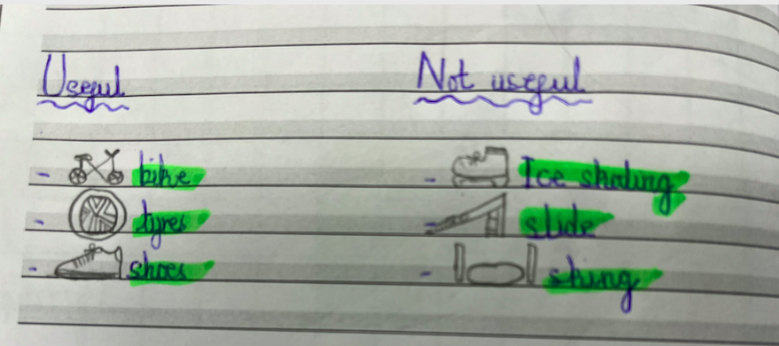 Useful
Not useful
- bike
- Ice skating
- tyres
- slide
- shoes
-